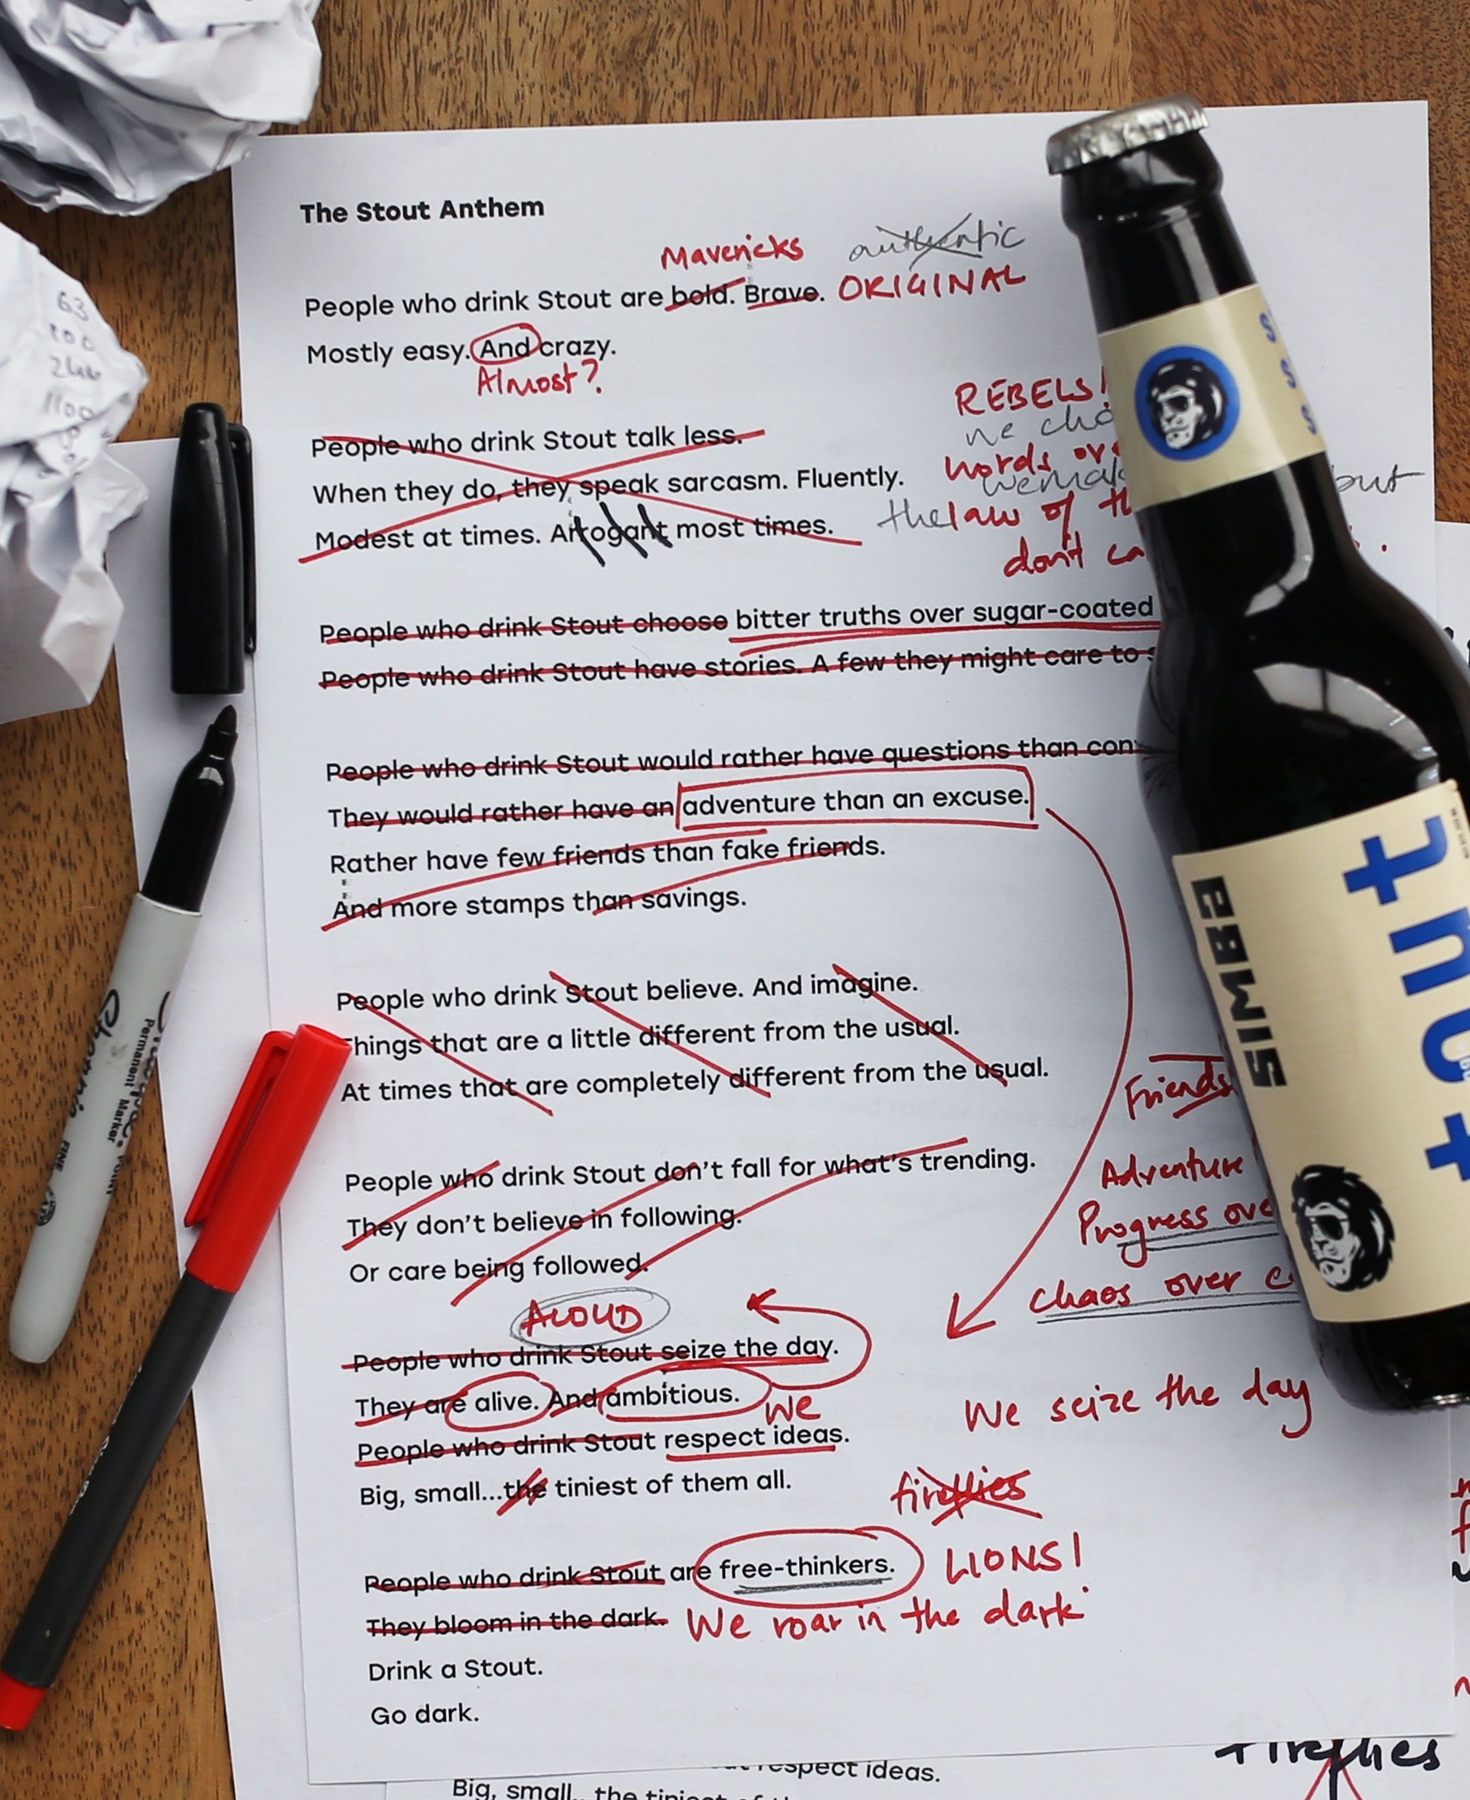 63
100
1100
The Stout Anthem
Mavericks authentic
People who drink Stout are bold. Brave. ORIGINAL
Mostly easy. And crazy.
Almost?
REBELS!
we
People who drink Stout talk less.
words
When they do, they speak sarcasm. Fluently.
but
the law of
Modest at times. Arrogant most times.
don't
People who drink Stout choose bitter truths over sugar-coated
People who drink Stout have stories. A few they might care to
People who drink Stout would rather have questions than
They would rather have an adventure than an excuse.
Rather have few friends than fake friends.
And more stamps than savings.
People who drink Stout believe. And imagine.
Things that are a little different from the usual.
At times that are completely different from the usual.
Friends
People who drink Stout don't fall for what's trending.
Adventure
They don't believe in following.
Progress
Or care being followed.
chaos over
ALOUD
People who drink Stout seize the day.
They are alive. And ambitious.
We
We seize the day
People who drink Stout respect ideas.
Big, small...the tiniest of them all.
fireflies
People who drink Stout are free-thinkers. LIONS!
They bloom in the dark. We roar in the dark
Drink a Stout.
Go dark.
respect ideas.
Big, small...the
fireflies
SIMBA
Sharpie
Permanent Marker
FINE